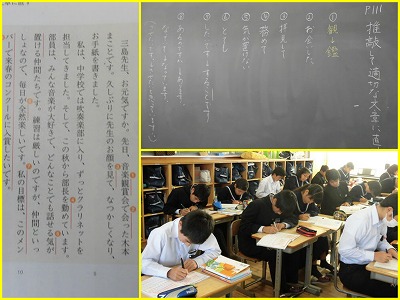 三島先生、お元気ですか。先日、音楽観賞会で会った木本
まことです。久しぶりに先生のお顔を見て、なつかしくなり、
お手紙を書きました。
私は、中学校では吹奏楽部に入り、ずっとクラリネットを
担当してきました。そして、この秋から部長を勤めています。
部員は、みんな音楽が大好きで、どんなことでも話せる気が
置ける仲間たちで、練習は厳しいのですが、仲間といっ
しょなので、毎日が全然楽しいです。私の目標は、このメン
バーで来春のコンクールに入賞したいです。
5
10
P111 推敲して適切な文章に直
①観→鑑
②お会いした
③拝見して
④務めて
⑤気の置けない
⑥とても
⑦
⑧